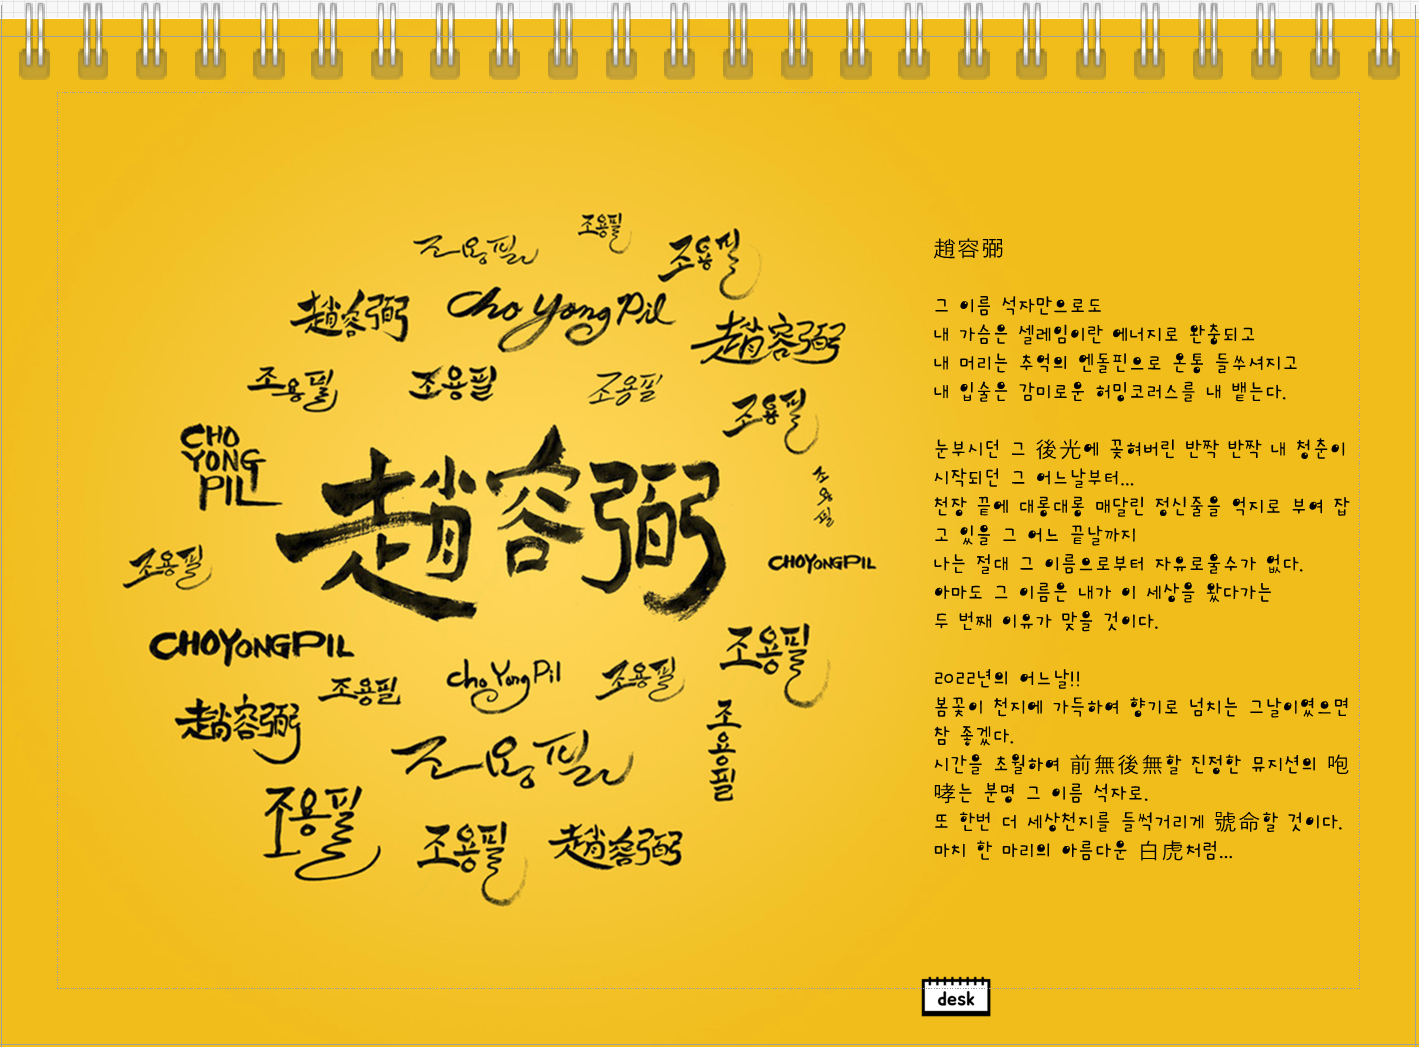 조용필
조용필
조용필
趙容弼
Cho Yong Pil
趙容弼
조용필
조용필
조용필
조용필
CHO
YONG
PIL
趙容弼
조용필
조용필
CHOYONGPIL
CHOYONGPIL
조용필
cho Yong Pil
조용필
조용필
趙容弼
조용필
조용필
조용필
조용필
趙容弼
趙容弼
그 이름 석자만으로도
내 가슴은 셀레임이란 에너지로 완충되고
내 머리는 추억의 엔돌핀으로 온통 들쑤셔지고
내 입술은 감미로운 허밍코러스를 내 뱉는다.
눈부시던 그 後光에 꽂혀버린 반짝 반짝 내 청춘이
시작되던 그 어느날부터...
천장 끝에 대롱대롱 매달린 정신줄을 억지로 부여 잡
고 있을 그 어느 끝날까지
나는 절대 그 이름으로부터 자유로울수가 없다.
아마도 그 이름은 내가 이 세상을 왔다가는
두 번째 이유가 맞을 것이다.
2022년의 어느날!!
봄꽃이 천지에 가득하여 향기로 넘치는 그날이였으면
참 좋겠다.
시간을 초월하여 前無後無할 진정한 뮤지션의 咆
哮는 분명 그 이름 석자로.
또 한번 더 세상천지를 들썩거리게 號命할 것이다.
마치 한 마리의 아름다운 白虎처럼...
desk